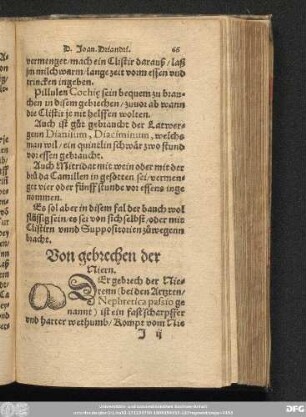 D. Joan. Driandri.
66
vermenget/mach ein Clistir darauß/laß
jn milchwarm/lange zeit vorm essen vnd
trincken ingeben.
Pillulen Cochię sein bequem zu brau-
chen in disem gebrechen/zuuor ab wann
die Clistir je nit helffen wolten.
Auch ist gůt gebraucht der Latwer-
gen Dianitum, Diaciminum, welchs
man wil/ein quintlin schwär zwo stund
vor essen gebraucht.
Auch Mitridat mit wein oder mit der
brů da Camillen in gesotten sei/vermen-
get vier oder fünff stunde vor essens inge
nommen.
Es sol aber in disem fal der bauch wol
flüssig sein/es sei von sich selbst/oder mit
Clistirn vnnd Suppositorien zůwegenn
bracht.
Von gebrechen der
Niern.
Der gebrech der Nie-
renn (bei den Arzten/
Nephretica passio ge
nannt) ist ein fast scharpffer
vnd harter wethumb/Kompt vom Nie
J ij